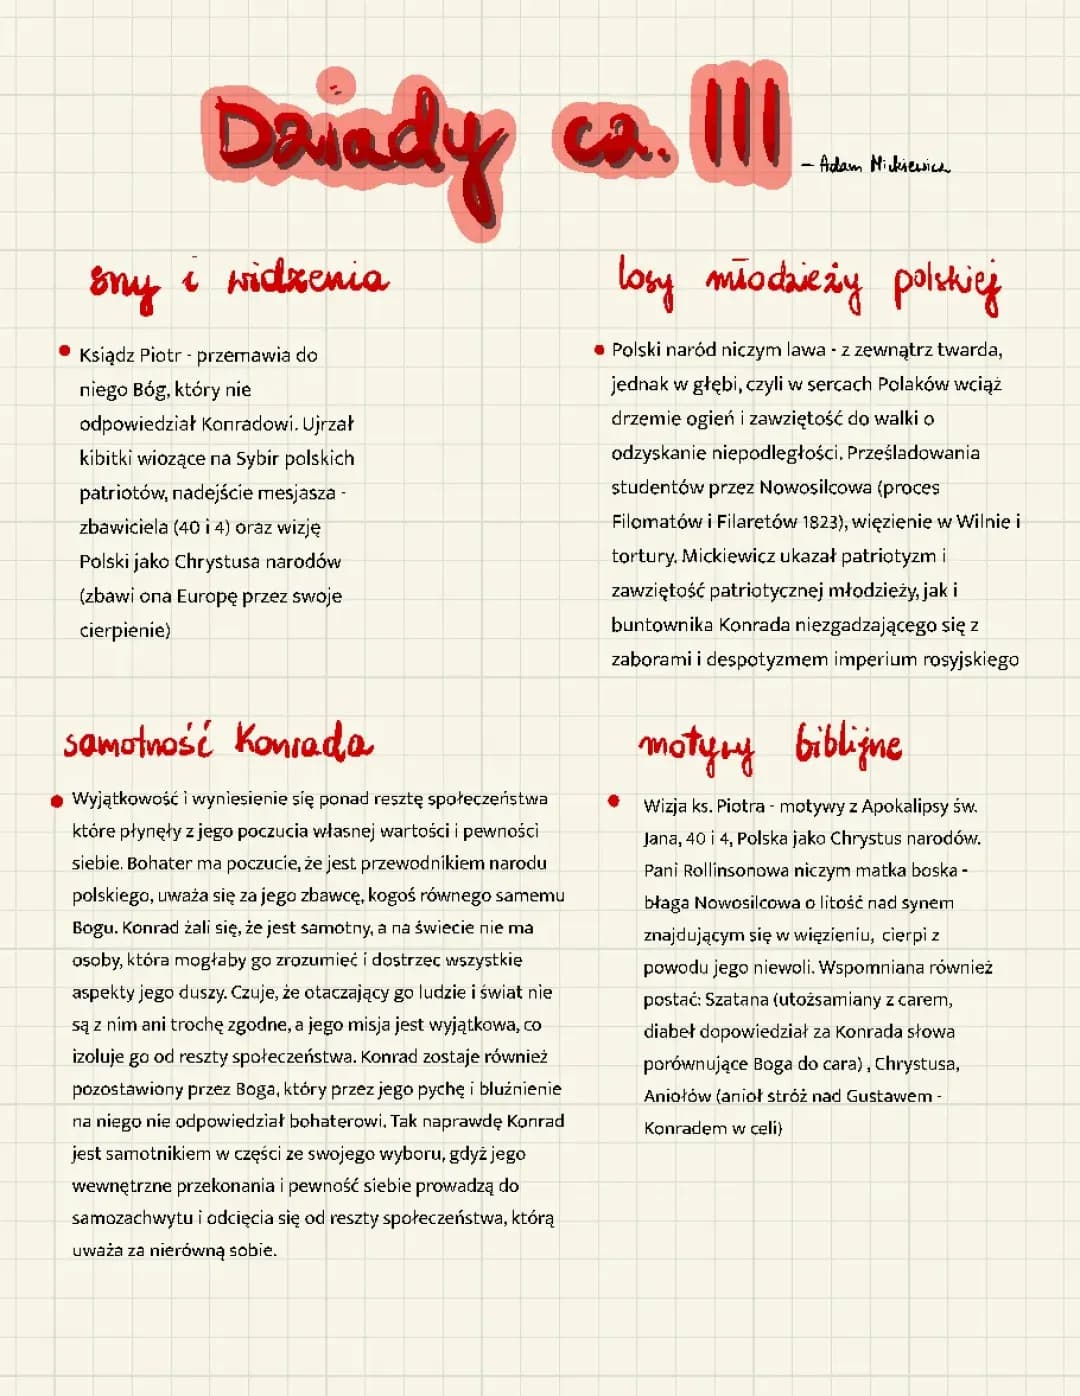 Dziady cz. III
- Adam Mickiewicz
sny i widzenia
Ksiądz Piotr - przemawia do
niego Bóg, który nie
odpowiedział Konradowi. Ujrzał
kibitki wiozące na Sybir polskich
patriotów, nadejście mesjasza -
zbawiciela (40 i 4) oraz wizję
Polski jako Chrystusa narodów
(zbawi ona Europę przez swoje
cierpienie)
losy młodzieży polskiej
Polski naród niczym lawa - z zewnątrz twarda,
jednak w głębi, czyli w sercach Polaków wciąż
drzemie ogień i zawziętość do walki o
odzyskanie niepodległości. Prześladowania
studentów przez Nowosilcowa (proces
Filomatów i Filaretów 1823), więzienie w Wilnie i
tortury. Mickiewicz ukazał patriotyzm i
zawziętość patriotycznej młodzieży, jak i
buntownika Konrada niezgadzającego się z
zaborami i despotyzmem imperium rosyjskiego
samotność Konrada
Wyjątkowość i wyniesienie się ponad resztę społeczeństwa
które płynęły z jego poczucia własnej wartości i pewności
siebie. Bohater ma poczucie, że jest przewodnikiem narodu
polskiego, uważa się za jego zbawcę, kogoś równego samemu
Bogu. Konrad żali się, że jest samotny, a na świecie nie ma
osoby, która mogłaby go zrozumieć i dostrzec wszystkie
aspekty jego duszy. Czuje, że otaczający go ludzie i świat nie
są z nim ani trochę zgodne, a jego misja jest wyjątkowa, co
izoluje go od reszty społeczeństwa. Konrad zostaje również
pozostawiony przez Boga, który przez jego pychę i bluźnienie
na niego nie odpowiedział bohaterowi. Tak naprawdę Konrad
jest samotnikiem w części ze swojego wyboru, gdyż jego
wewnętrzne przekonania i pewność siebie prowadzą do
samozachwytu i odcięcia się od reszty społeczeństwa, którą
uważa za nierówną sobie.
motywy biblijne
Wizja ks. Piotra - motywy z Apokalipsy św.
Jana, 40 i 4, Polska jako Chrystus narodów.
Pani Rollinsonowa niczym matka boska -
błaga Nowosilcowa o litość nad synem
znajdującym się w więzieniu, cierpi z
powodu jego niewoli. Wspomniana również
postać: Szatana (utożsamiany z carem,
diabeł dopowiedział za Konrada słowa
porównujące Boga do cara), Chrystusa,
Aniołów (anioł stróż nad Gustawem -
Konradem w celi)